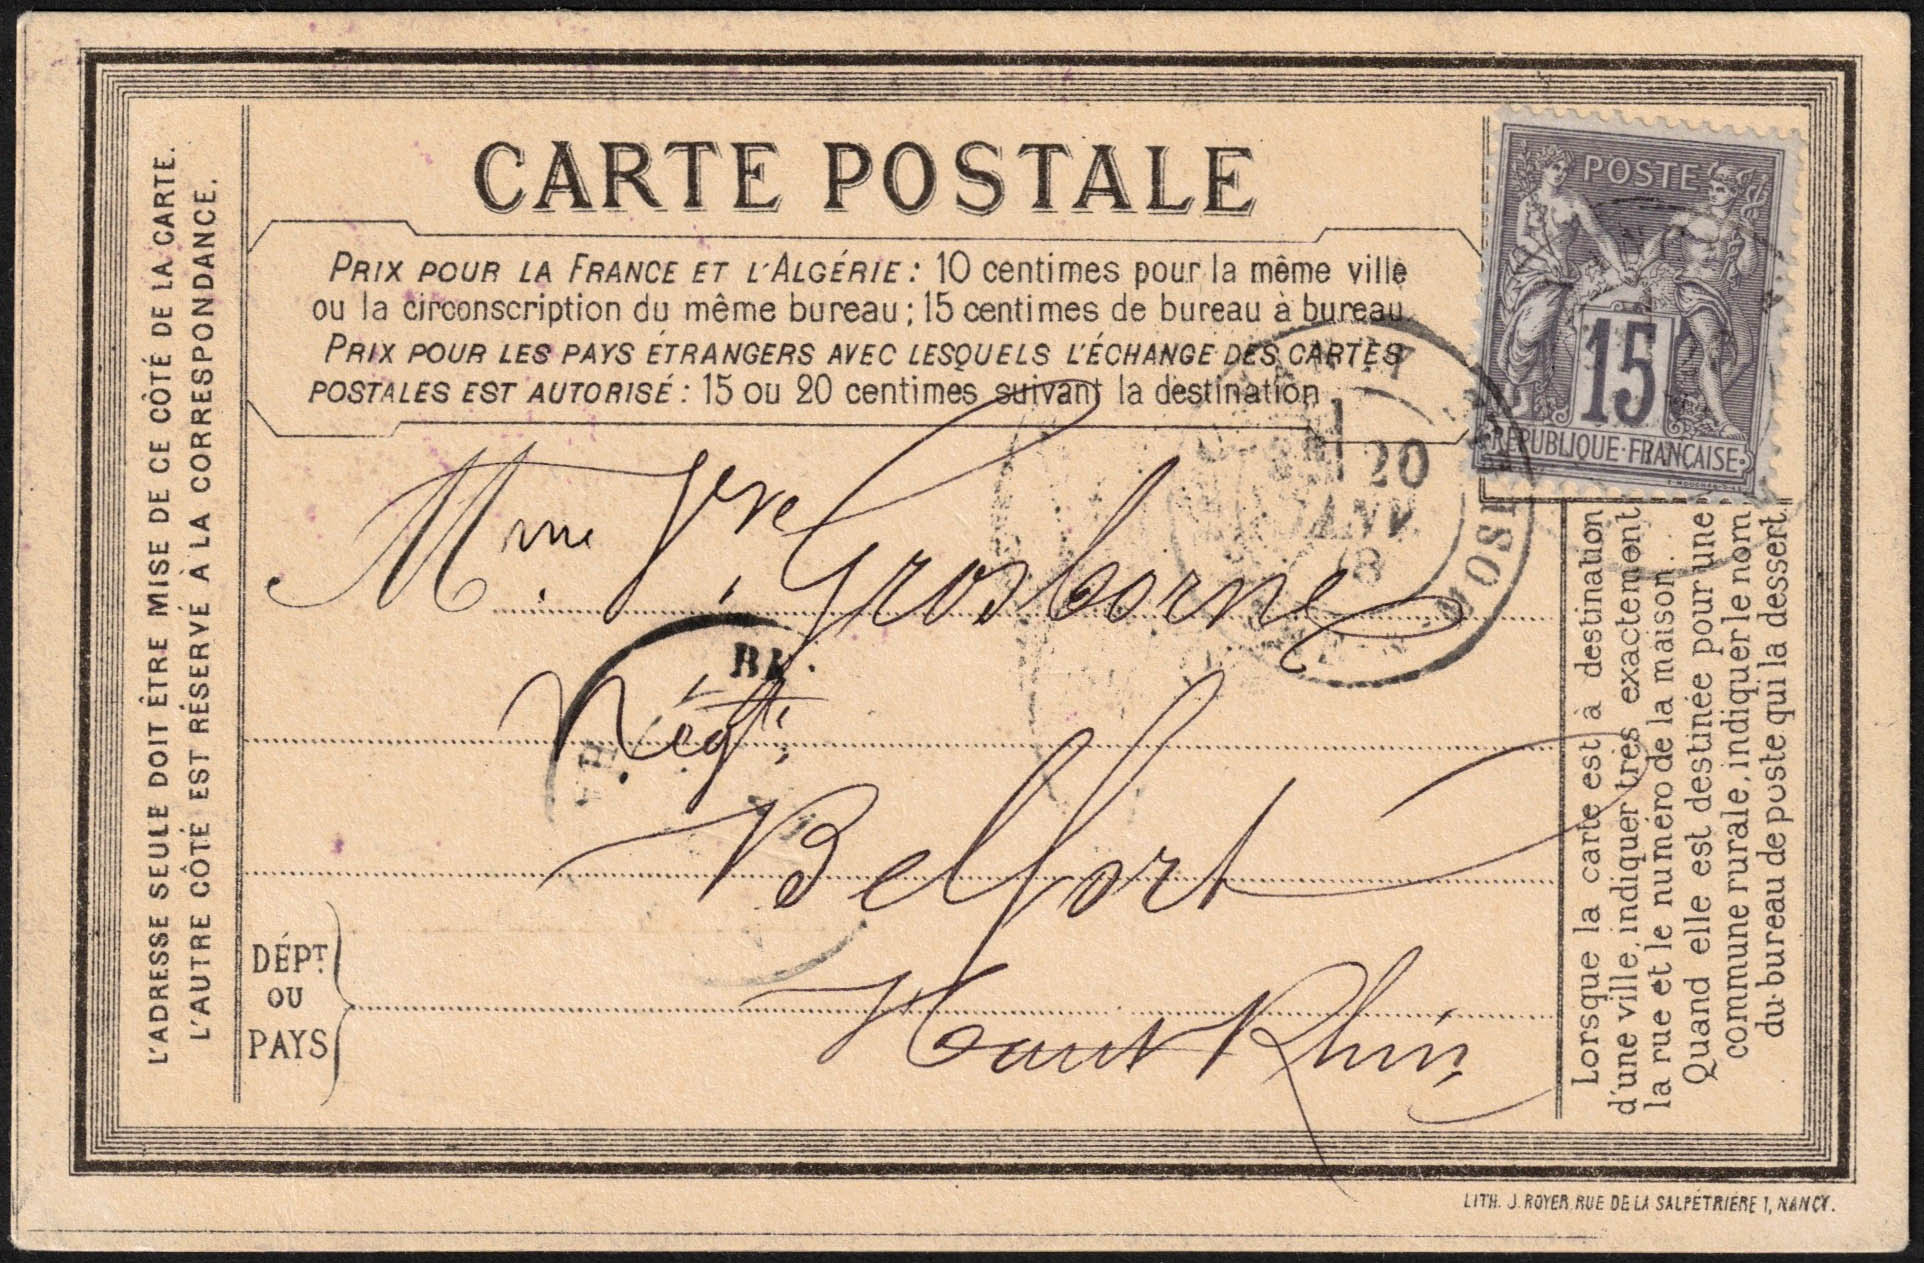 CARTE POSTALE
PRIX POUR LA FRANCE ET L'ALGÉRIE : 10 centimes pour la même ville
ou la circonscription du même bureau ; 15 centimes de bureau à bureau
PRIX POUR LES PAYS ÉTRANGERS AVEC LESQUELS L'ÉCHANGE DES CARTES
POSTALES EST AUTORISÉ : 15 ou 20 centimes suivant la destination
POSTE
15
REPUBLIQUE · FRANÇAISE
L'ADRESSE SEULE DOIT ÊTRE MISE DE CE CÔTÉ DE LA CARTE.
L'AUTRE CÔTÉ EST RÉSERVÉ À LA CORRESPONDANCE.
20
JANV
Mme Vve Grosborne
Négte
Belfort
Haut Rhin
DÉPT
OU
PAYS
Lorsque la carte est à destination
d'une ville, indiquer très exactement
la rue et le numéro de la maison.
Quand elle est destinée pour une
commune rurale, indiquer le nom
du bureau de poste qui la dessert.
LITH. J. ROYER, RUE DE LA SALPÉTRIÈRE 1, NANCY.